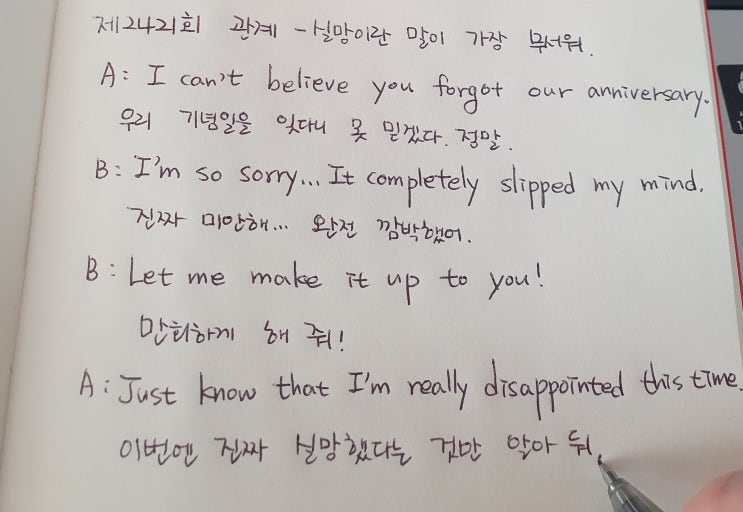 제2421회 관계 - 실망이란 말이 가장 무서워.
A: I can't believe you forgot our anniversary.
우리 기념일을 잊다니 못 믿겠다. 정말.
B: I'm so sorry... It completely slipped my mind.
진짜 미안해... 완전 깜박했어.
B: Let me make it up to you!
만회하게 해 줘!
A: Just know that I'm really disappointed this time.
이번엔 진짜 실망했다는 것만 알아 둬.